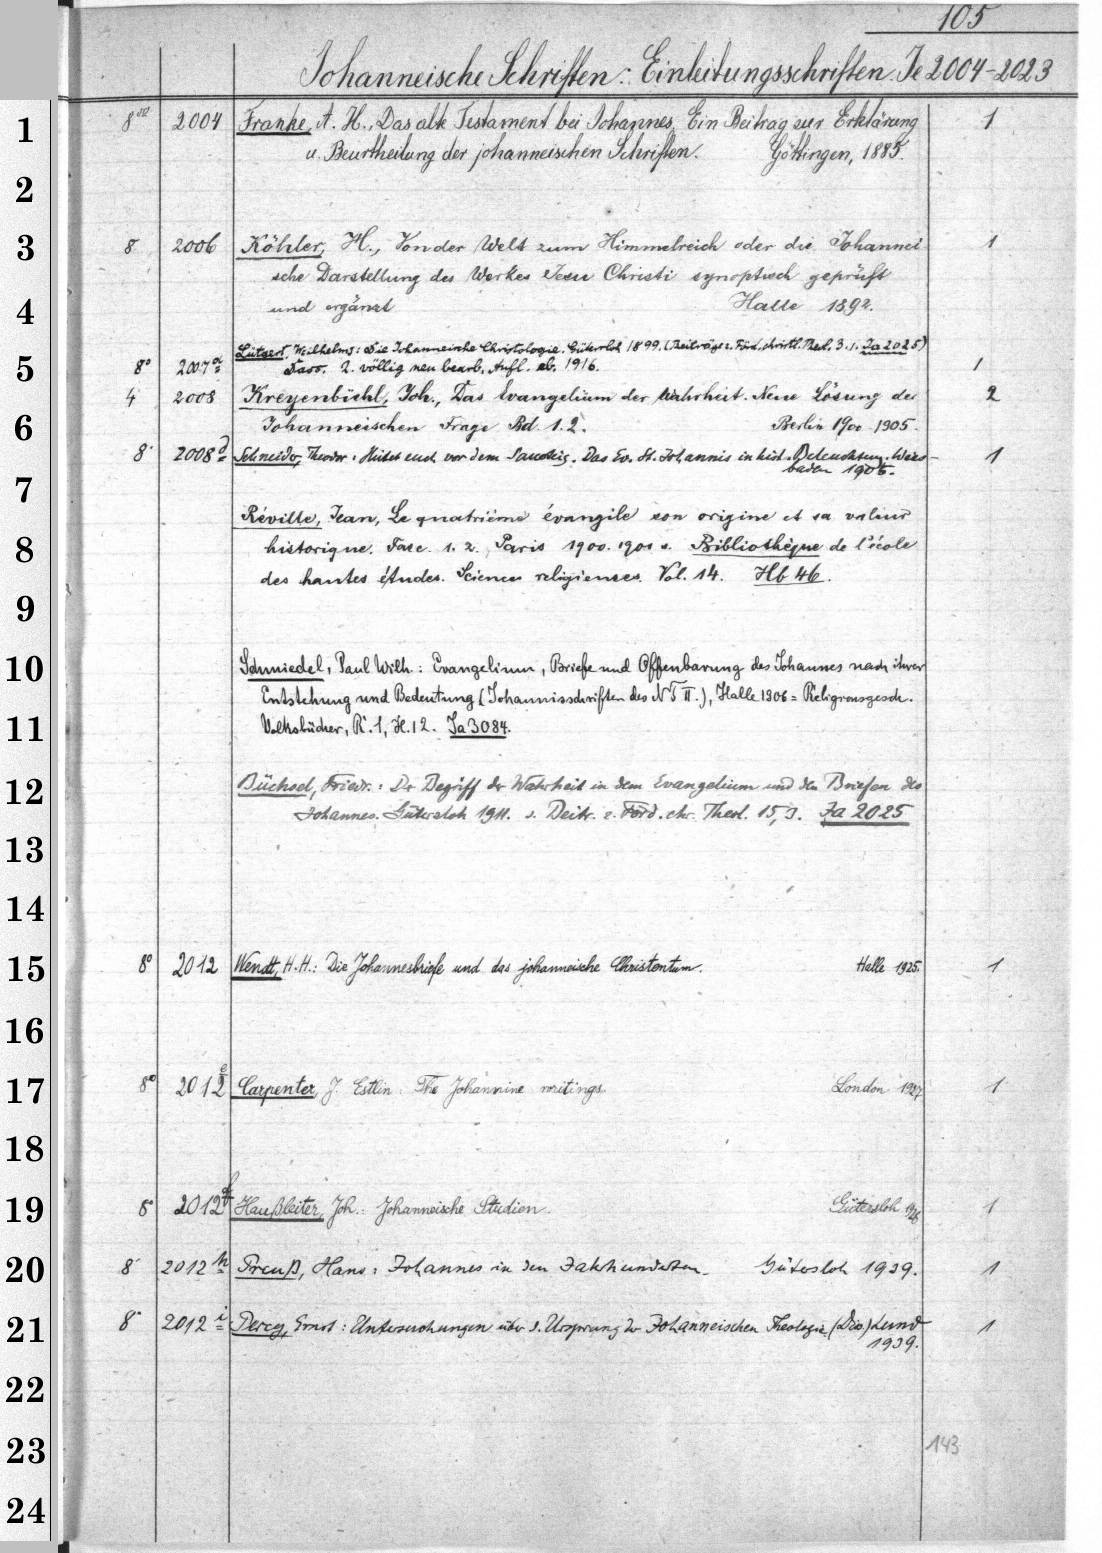 105
Johanneische Schriften: Einleitungsschriften. Ie 2004-2023
1 8vo 2004 Franke, A. H., Das alte Testament bei Johannes. Ein Beitrag zur Erklärung 1
u. Beurtheilung der johanneischen Schriften. Göttingen, 1885.
2
3 8 2006 Köhler, H., Von der Welt zum Himmelreich oder die Johannei 1
sche Darstellung des Werkes Jesu Christi synoptisch geprüft
4 und ergänzt Halle 1892.
Lütgert, Wilhelm: Die Johanneische Christologie. Gütersloh 1899. (Beiträge z. Förd. christl. Theol. 3.1. Ia 2025)
5 8° 2007a Dass. 2. völlig neu bearb. Aufl. eb. 1916. 1
4 2008 Kreyenbühl, Joh., Das Evangelium der Wahrheit. Neue Lösung der 2
6 Johanneischen Frage Bd. 1. 2. Berlin 1900 1905.
8° 2008d Schneider, Theodor: Hütet euch vor dem Das Ev. St. Johannis in hist. Beleuchtung. Wies- 1
baden 1905.
7
Réville, Jean, Le quatrième évangile son origine et sa valeur
8 historique. Fasc. 1. 2. Paris 1900. 1901 s. Bibliothèque de l'école
des hautes études. Sciences religieuses. Vol. 14. Hb 46.
9
10 Schmiedel, Paul Wilh.: Evangelium, Briefe und Offenbarung des Johannes nach ihrer
Entstehung und Bedeutung (Johannisschriften des NT II.), Halle 1906 = Religionsgesch.
11 Volksbücher, R. 1, H. 12. Ia 3084.
12 Büchsel, Friedr.: Der Begriff der Wahrheit in dem Evangelium und den Briefen des
Johannes. Gütersloh 1911. s. Beitr. z. Förd. chr. Theol. 15, 3. Ia 2025
13
14
15 8° 2012 Wendt, H. H.: Die Johannesbriefe und das johanneische Christentum. Halle 1925. 1
16
17 8° 2012e Carpenter, J. Estlin: The Johannine writings. London 1927 1
18
19 8° 2012f Haußleiter, Joh.: Johanneische Studien. Gütersloh 1928 1
20 8° 2012h Preuß, Hans: Johannes in den Jahrhunderten. Gütersloh 1939. 1
21 8° 2012i Percy, Ernst: Untersuchungen über d. Ursprung der Johanneischen Theologie. (Diss) Lund 1
1939.
22
23 143
24